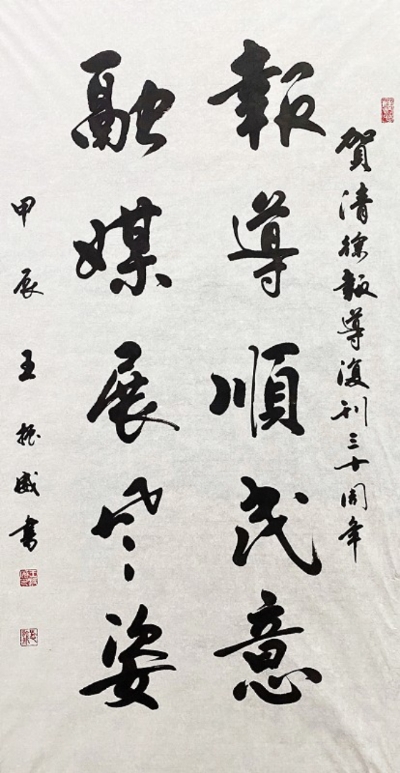 賀清徐報導復刊三十周年
報導順民意
融媒展姿
甲辰王振威書